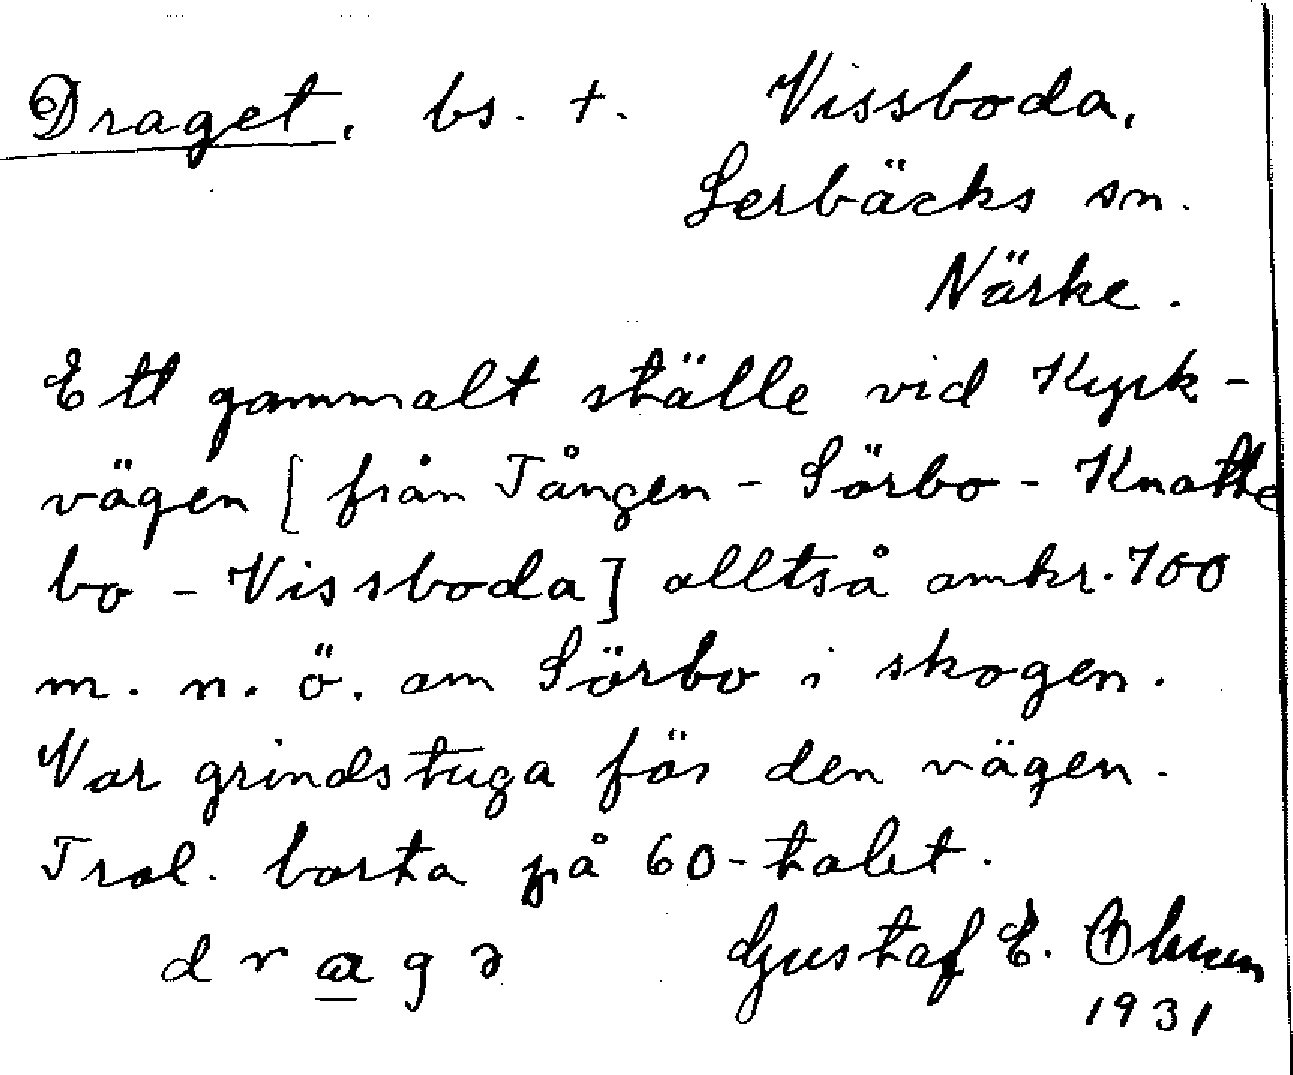 Draget. bs. †. Vissboda,
Lerbäcks sn.
Närke.
Ett gammalt ställe vid Kyrk-
vägen [från Tången - Sörbo - Knatte
bo - Vissboda] alltså omkr. 700
m. n. ö. om Sörbo i skogen.
Var grindstuga för den vägen.
Trol. borta på 60-talet.
d r a g ə Gustaf E. Olsson
1931